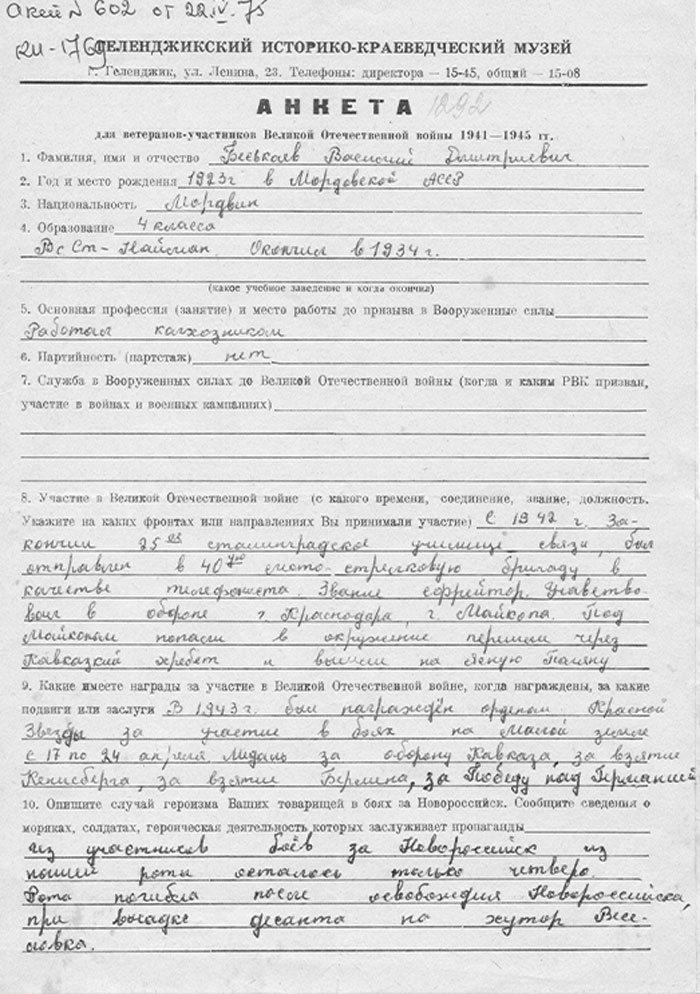 Акт № 602 от 22.IV.75
ГЕЛЕНДЖИКСКИЙ ИСТОРИКО-КРАЕВЕДЧЕСКИЙ МУЗЕЙ
г. Геленджик, ул. Ленина, 23. Телефоны: директора — 15-45, общий — 15-08
АНКЕТА 1292
для ветеранов-участников Великой Отечественной войны 1941—1945 гг.
1. Фамилия, имя и отчество Василий Дмитриевич
2. Год и место рождения 1923г в Мордовской АССР
3. Национальность Мордвин
4. Образование 4 класса
В с Ст-Найман. Окончил в 1934 г.
(какое учебное заведение и когда окончил)
5. Основная профессия (занятие) и место работы до призыва в Вооруженные силы
Работал калхозником
6. Партийность (партстаж) нет
7. Служба в Вооруженных силах до Великой Отечественной войны (когда и каким РВК призван,
участие в войнах и военных кампаниях)
8. Участие в Великой Отечественной войне (с какого времени, соединение, звание, должность.
Укажите на каких фронтах или направлениях Вы принимали участие) С 1942 г. За-
кончил 25ое сталинградское училище связи, был
отправлен в 40ую мото-стрелковую бригаду в
качестве телефониста. Звание ефрейтор. Учавство-
вал в обороне г. Краснодара, г. Майкопа. Под
Майкопом попали в окружение перешли через
Кавказкий хребет и вышли на Ясную Паляну
9. Какие имеете награды за участие в Великой Отечественной войне, когда награждены, за какие
подвиги или заслуги В 1943 г. был награждён орденом Красной
Звезды за участие в боях на Малой земле
с 17 по 24 апреля Медаль за оборону Кавказа, за взятие
Кенисберга, за взятие Берлина, за Победу над Германией
10. Опишите случай героизма Ваших товарищей в боях за Новороссийск. Сообщите сведения о
моряках, солдатах, героическая деятельность которых заслуживает пропаганды
из участников боёв за Новороссийск из
нашей роты осталось только четверо.
Рота погибла после освобождия Новороссийска,
при высадке десанта на хутор Весе-
ловка.